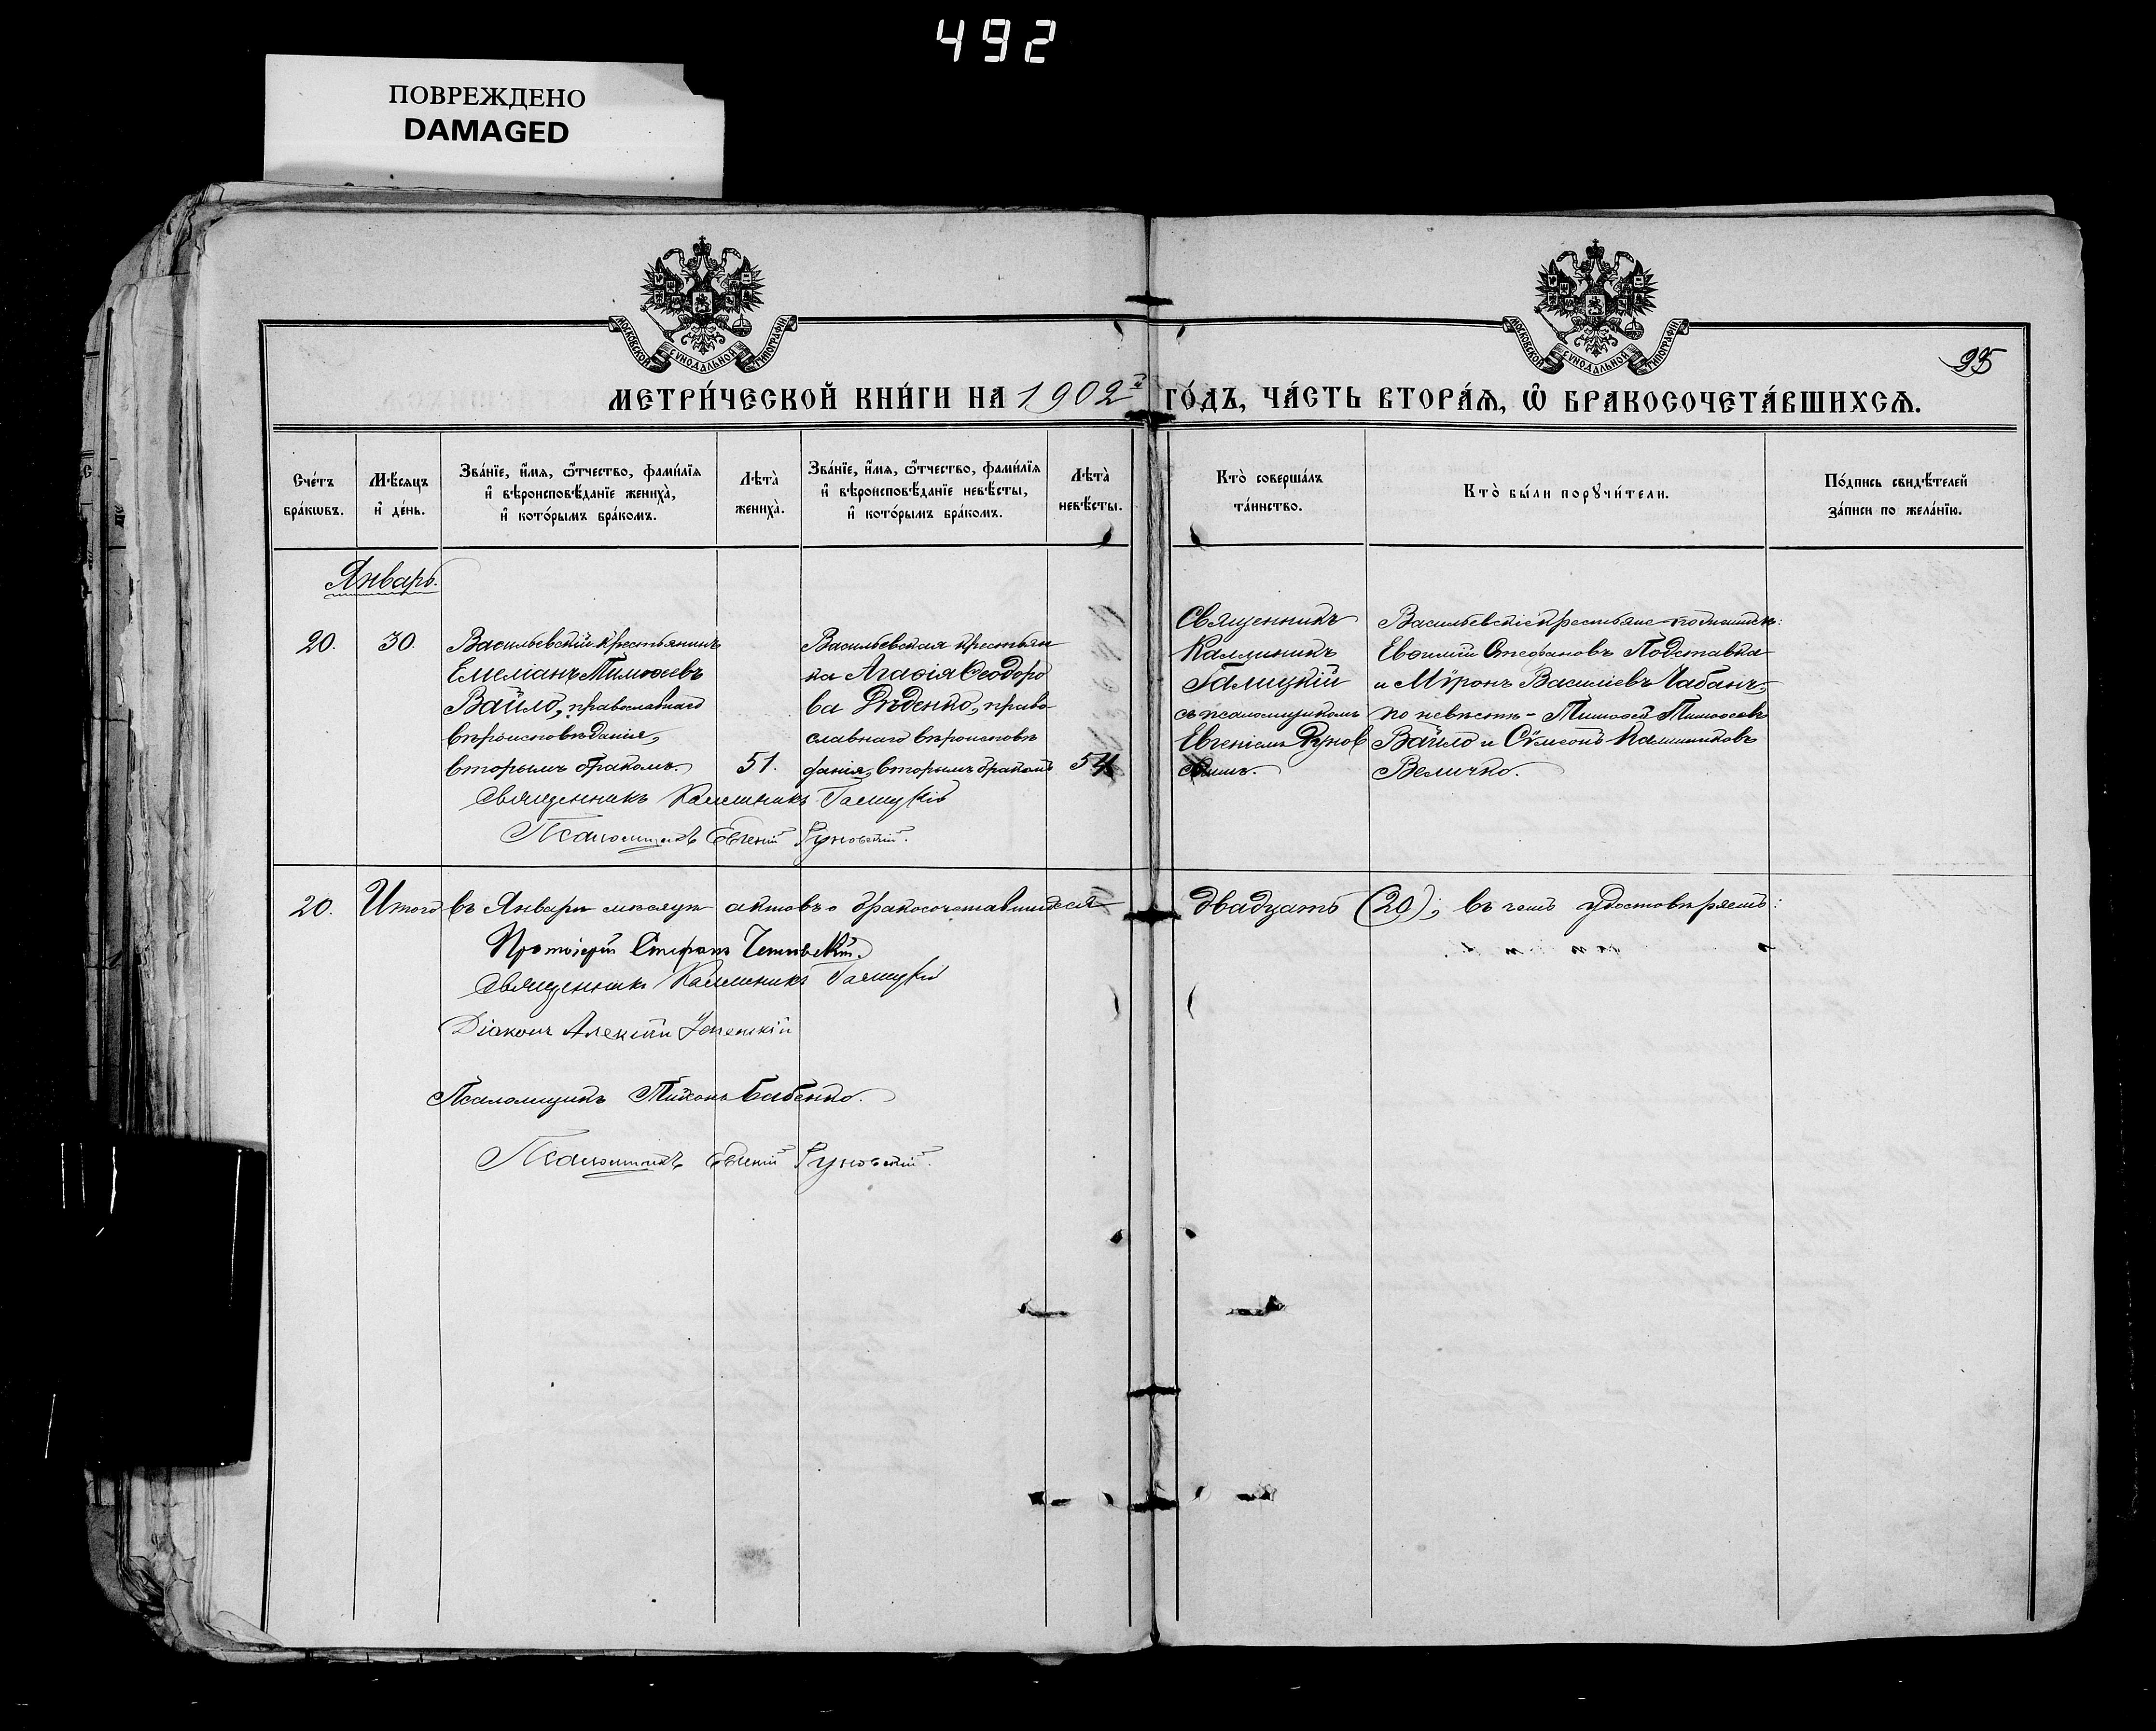 492
ПОВРЕЖДЕНО
DAMAGED
МОСКОВСКОЙ СѴНОДАЛЬНОЙ ТИПОГРАФІИ
МОСКОВСКОЙ СѴНОДАЛЬНОЙ ТИПОГРАФІИ
95
МЕТРИ́ЧЕСКОЙ КНИ́ГИ НА 1902й ГО́ДЪ, ЧА́СТЬ ВТОРА́Ѧ, Ѽ БРАКОСОЧЕТА́ВШИХСѦ.
Сче́тъ бра́кωвъ.
Мѣ́сяцъ и҆ де́нь.
Зва́нїе, и҆́мя, ѿтчество, фами́лїя и҆ вѣроисповѣ́данїе жениха̀, и҆ кото́рымъ бра́комъ.
Лѣта̀ жениха̀.
Зва́нїе, и҆́мя, ѿтчество, фами́лїя и҆ вѣроисповѣ́данїе невѣ́сты, и҆ кото́рымъ бра́комъ.
Лѣта̀ невѣ́сты.
Кто̀ соверша́лъ та́инство.
Кто̀ бы́ли порꙋчи́тели.
По́дпись свидѣ́телей за́писи по жела́нїю.
Январь.
20.
30.
Васильевскій крестьянинъ
Емеліанъ Тимоѳеевъ
Вайло, православнаго
вѣроисповѣданія,
вторымъ бракомъ.
51.
Васильевская крестьян
ка Агаѳія Ѳеодоро
ва Дѣденко, право
славнаго вѣроисповѣ
данія, вторымъ бракомъ
54
Священникъ
Каллиникъ
Галицкій
съ псаломщикомъ
Евгеніемъ Рунов
скимъ.
Васильевскіе крестьяне по женихѣ:
Евѳимій Стефановъ Подставка
и Мѵронъ Василіевъ Чабанъ;
по невѣстѣ – Тимоѳей Тимоѳеевъ
Вайло и Сѵмеонъ Каллиниковъ
Величко.
Священникъ Каллиникъ Галицкій
Псаломщикъ Евгеній Руновскій.
20. Итого въ Январѣ мѣсяцѣ актовъ о бракосочетавшихся двадцать (20), въ чемъ удостовѣряемъ:
Протоіерей Стефанъ
Священникъ Каллиникъ Галицкій
Діаконъ Алексій
Псаломщикъ Тихонъ Бабенко.
Псаломщикъ Евгеній Руновскій.